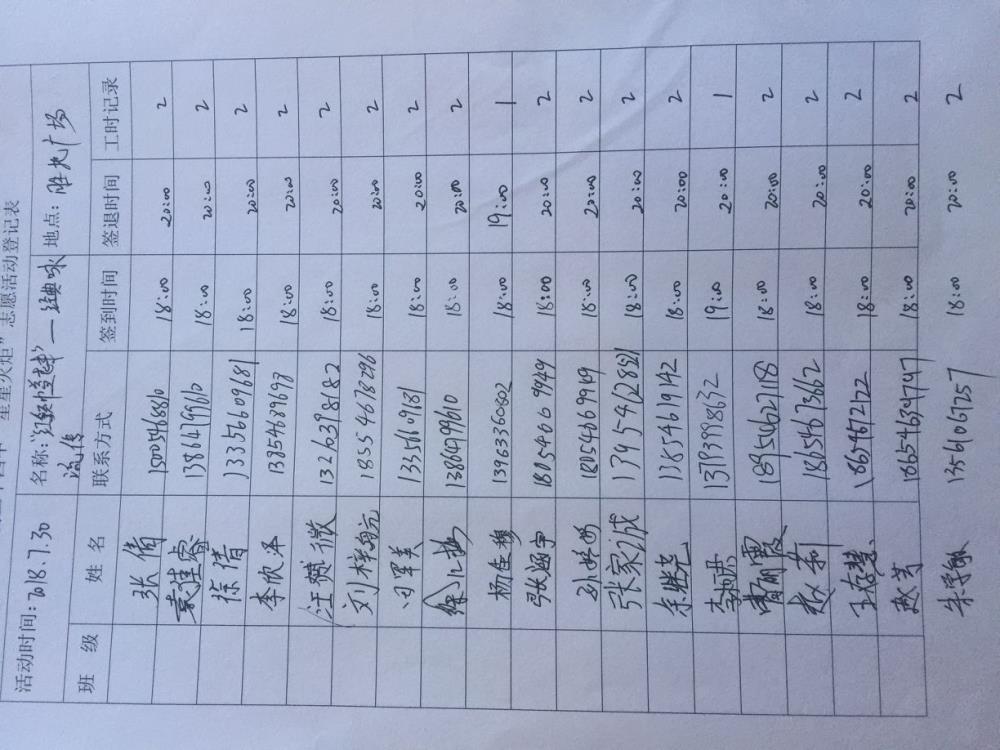 星星火炬”志愿活动登记表
活动时间：2018.7.30 名称：“红领巾心向党”—经典咏流传 地点：胜利广场
班 级 姓 名 联系方式 签到时间 签退时间 工时记录
张倩 15005468810 18:00 20:00 2
袁佳睿 13864799610 18:00 20:00 2
徐倩 13356609681 18:00 20:00 2
李欣 13854689698 18:00 20:00 2
汪赞微 1326398182 18:00 20:00 2
刘梓 18554678296 18:00 20:00 2
田军美 13356609181 18:00 20:00 2
徐 13864799610 18:00 20:00 2
杨佳穆 13963360602 18:00 19:00 1
张涵宇 18054669949 18:00 20:00 2
孙 18054669919 18:00 20:00 2
张家诚 13954628521 18:00 20:00 2
18:00 20:00 2
李 13793998632 19:00 20:00 1
曹丽霞 18954627118 18:00 20:00 2
赵莉 18654673662 18:00 20:00 2
王春慧 18654672122 18:00 20:00 2
赵芳 18654634747 18:00 20:00 2
宋学敏 13561067257 18:00 20:00 2